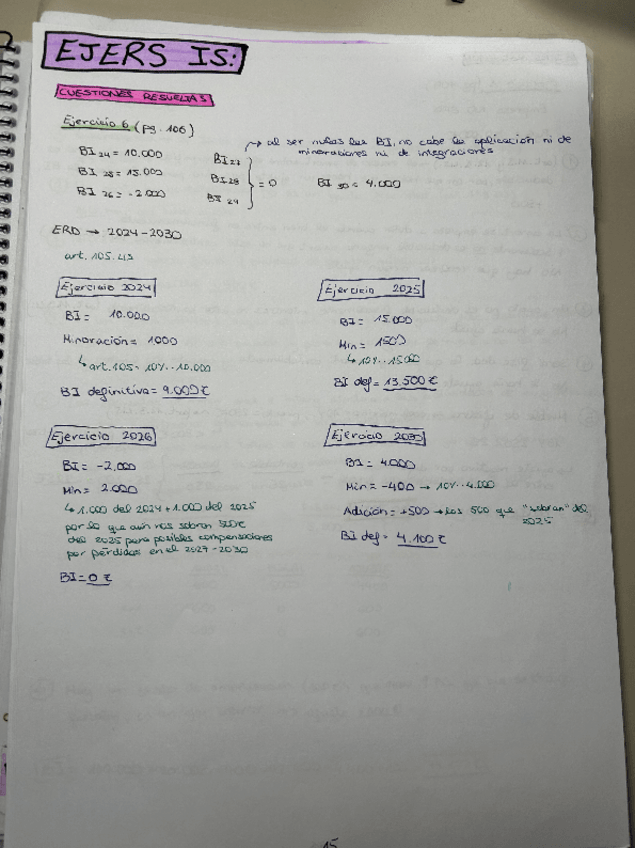 EJERS IS:
CUESTIONES RESUELTAS
Ejercicio 6 (pg. 106)
↳ al ser nulas las BI, no cabe la aplicación ni de
minoraciones ni de integraciones
BI 24 = 10.000
BI 25 = 15.000
BI 26 = -2.000
BI 27
BI 28
BI 29
= 0
BI 30 = 4.000
ERD → 2024-2030
art. 105. LIS
Ejercicio 2024
BI = 10.000
Minoración = 1000
↳ art. 105 = 10% · 10.000
BI definitiva = 9.000 €
Ejercicio 2025
BI = 15.000
Min = 1500
↳ 10% · 15000
BI def = 13.500 €
Ejercicio 2026
BI = -2.000
Min = 2.000
↳ 1.000 del 2024 + 1.000 del 2025
por lo que aún nos sobran 500€
del 2025 para posibles compensaciones
por pérdidas en el 2027-2030
BI = 0 €
Ejercicio 2030
BI = 4.000
Min = -400 → 10% · 4.000
Adición = +500 → los 500 que "sobran" del
2025
BI def = 4.100 €
15